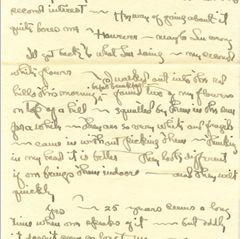 second interest — Hurry of going about it
quite bores me — However — maybe I'm wrong
I'll get back to what I'm doing — my second
white flower — I walked out into the red
hills this morning before breakfast found two of my flowers
on top of a hill — squatted by them in the sun
for a while — They are so very white and fragile
— came in without picking them — thinking
in my head it is better They look different
if one brings them indoors — and they wilt
quickly
Yes — 25 years seems a long
time when one speaks of it — but oddly
it doesn't seem so long